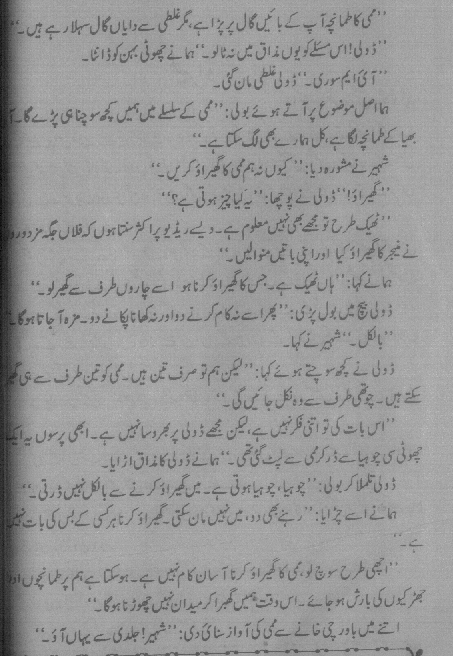 ’’ممی کا طمانچہ آپ کے بائیں گال پر پڑا ہے، مگر غلطی سے دایاں گال سہلا رہے ہیں۔‘‘
’’ڈولی! اس مسئلے کو یوں مذاق میں نہ ٹالو۔‘‘ ہما نے چھوٹی بہن کو ڈانٹا۔
’’آئی ایم سوری۔‘‘ ڈولی غلطی مان گئی۔
ہما اصل موضوع پر آتے ہوئے بولی: ’’ممی کے سلسلے میں ہمیں کچھ سوچنا ہی پڑے گا۔
بھیا کے طمانچہ لگا ہے، کل ہمارے بھی لگ سکتا ہے۔‘‘
شہیر نے مشورہ دیا: ’’کیوں نہ ہم ممی کا گھیراؤ کریں۔‘‘
’’گھیراؤ!‘‘ ڈولی نے پوچھا: ’’یہ کیا چیز ہوتی ہے؟‘‘
’’ٹھیک طرح تو مجھے بھی نہیں معلوم ہے۔ ویسے ریڈیو پر اکثر سنتا ہوں کہ فلاں جگہ مزدوروں
نے منیجر کا گھیراؤ کیا اور اپنی باتیں منوالیں۔‘‘
ہما نے کہا: ’’ہاں ٹھیک ہے۔ جس کا گھیراؤ کرنا ہو اسے چاروں طرف سے گھیر لو۔‘‘
ڈولی بیچ میں بول پڑی: ’’پھر اسے نہ کام کرنے دو اور نہ کھانا پکانے دو۔ مزہ آ جاتا ہوگا۔‘‘
’’بالکل۔‘‘ شہیر نے کہا۔
ڈولی نے کچھ سوچتے ہوئے کہا: ’’لیکن ہم تو صرف تین ہیں۔ ممی کو تین طرف سے ہی گھیر
سکتے ہیں۔ چوتھی طرف سے وہ نکل جائیں گی۔‘‘
’’اس بات کی تو اتنی فکر نہیں ہے، لیکن مجھے ڈولی پر بھروسا نہیں ہے۔ ابھی پرسوں یہ ایک
چھوٹی سی چوہیا سے ڈر کر ممی سے لپٹ گئی تھی۔‘‘ ہما نے ڈولی کا مذاق اڑایا۔
ڈولی تلملا کر بولی: ’’چوہیا، چوہیا ہوتی ہے۔ میں گھیراؤ کرنے سے بالکل نہیں ڈرتی۔‘‘
ہما نے اسے چڑایا: ’’رہنے بھی دو، میں نہیں مان سکتی۔ گھیراؤ کرنا ہر کسی کے بس کی بات نہیں
ہے۔‘‘
’’اچھی طرح سوچ لو، ممی کا گھیراؤ کرنا آسان کام نہیں ہے۔ ہوسکتا ہے ہم پر طمانچوں اور
جھڑکیوں کی بارش ہو جائے۔ اس وقت ہمیں گھبرا کر میدان نہیں چھوڑنا ہوگا۔‘‘
اتنے میں باورچی خانے سے ممی کی آواز سنائی دی: ’’شہیر! جلدی سے یہاں آؤ۔‘‘